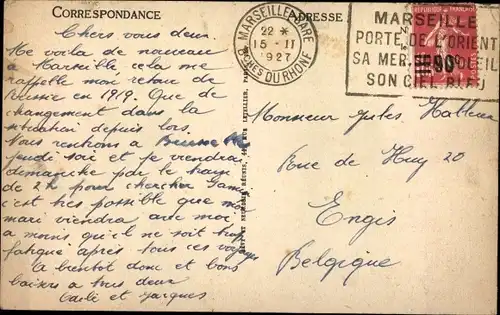 CORRESPONDANCE
Chers vous deux
Me voila de nouveau
à Marseille cela me
rappelle mon retour de
Russie en 1919. Que de
changement dans la
situation depuis lors.
Nous rentrons à
jeudi soir et je viendrai
dimanche par le train
de 2h pour chercher
c'est très possible que mon
mari viendra avec moi
a moins qu'il ne soit trop
fatigué après tous ces voyages
A bientôt donc et bons
baisers a vous deux
et Jacques
ADRESSE
MARSEILLE GARE
22 *
15 - 11
1927
BCHES DU RHONE
MARSEILLE
PORTE DE L'ORIENT
SA MER, SOLEIL
SON CIEL BLEU
90c
Monsieur Jules Halleux
Rue de Huy 20
Engis
Belgique